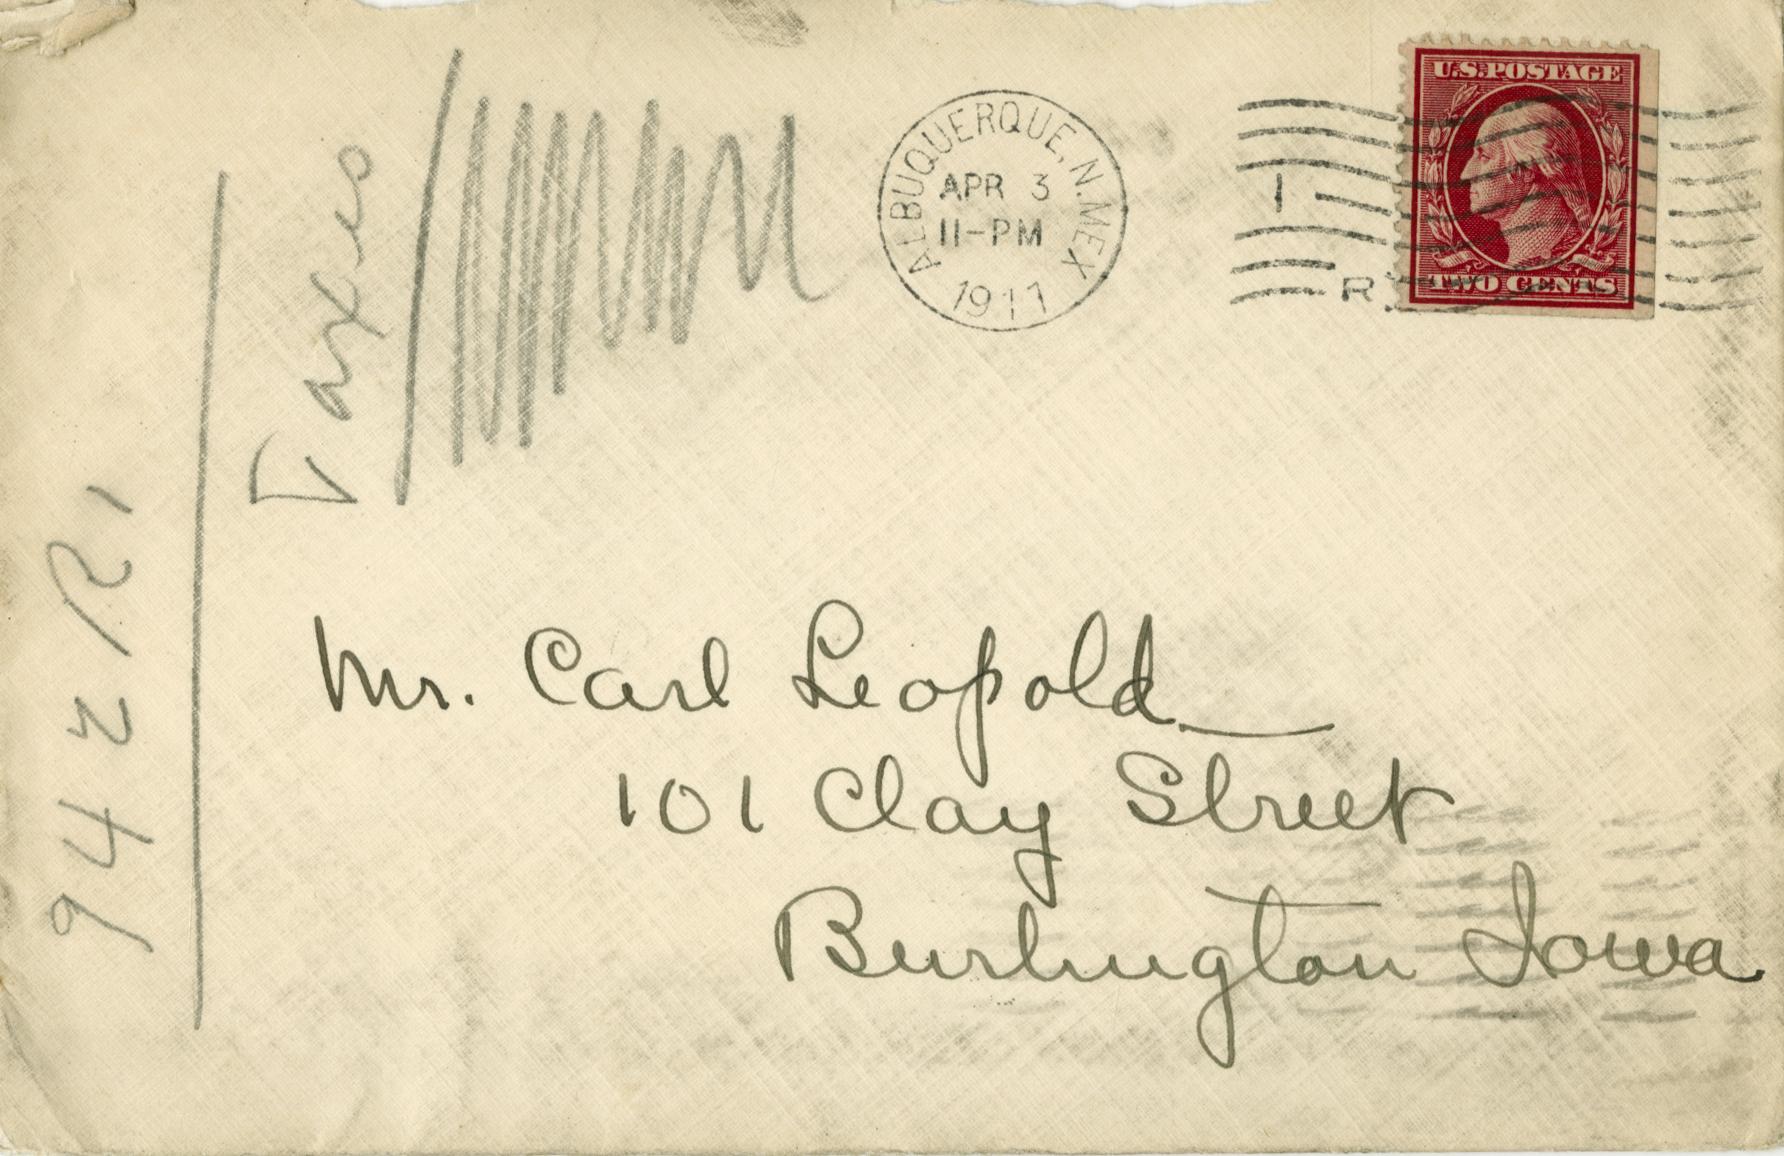 ALBUQUERQUE, N. MEX
APR 3
11-PM
1911
1
R
U.S. POSTAGE
TWO CENTS
Taxes
942 R1
Mr. Carl Leopold
101 Clay Street
Burlington Iowa